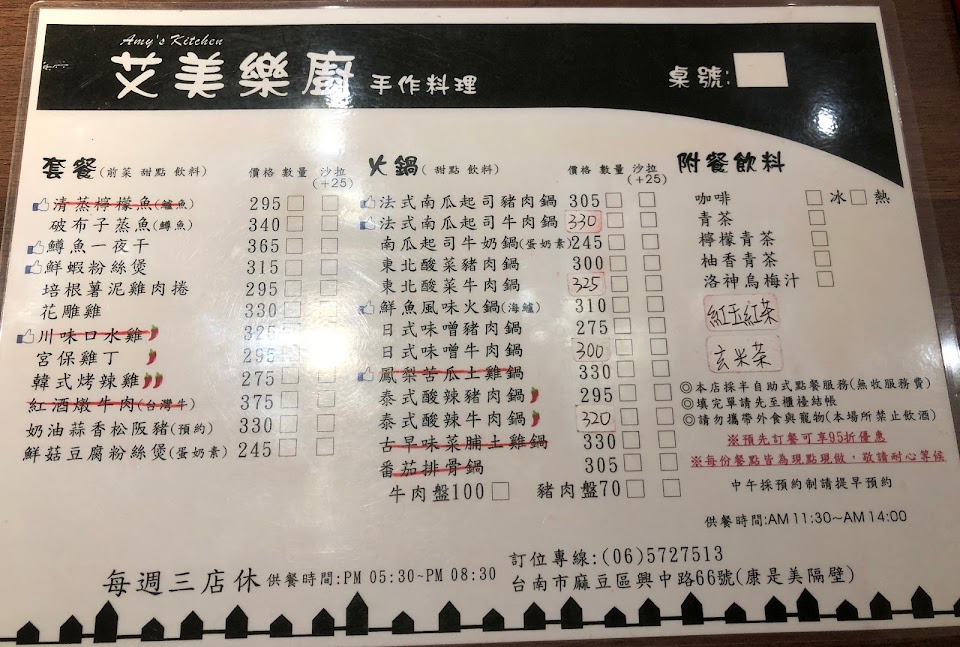 Amy's Kitchen
艾美樂廚 手作料理
桌號:
套餐(前菜 甜點 飲料) 價格 數量 沙拉(+25)
清蒸檸檬魚(鱸魚) 295
破布子蒸魚(鱒魚) 340
鱒魚一夜干 365
鮮蝦粉絲煲 315
培根薯泥雞肉捲 295
花雕雞 330
川味口水雞 325
宮保雞丁 295
韓式烤辣雞 275
紅酒燉牛肉(台灣牛) 375
奶油蒜香松阪豬(預約) 330
鮮菇豆腐粉絲煲(蛋奶素) 245
火鍋(甜點 飲料) 價格 數量 沙拉(+25)
法式南瓜起司豬肉鍋 305
法式南瓜起司牛肉鍋 330
南瓜起司牛奶鍋(蛋奶素) 245
東北酸菜豬肉鍋 300
東北酸菜牛肉鍋 325
鮮魚風味火鍋(海鱸) 310
日式味噌豬肉鍋 275
日式味噌牛肉鍋 300
鳳梨苦瓜土雞鍋 330
泰式酸辣豬肉鍋 295
泰式酸辣牛肉鍋 320
古早味菜脯土雞鍋 330
番茄排骨鍋 305
牛肉盤100 豬肉盤70
附餐飲料
咖啡 冰 熱
青茶
檸檬青茶
柚香青茶
洛神烏梅汁
紅玉紅茶
玄米茶
◎本店採半自助式點餐服務(無收服務費)
◎填完單請先至櫃檯結帳
◎請勿攜帶外食與寵物(本場所禁止飲酒)
※預先訂餐可享95折優惠
※每份餐點皆為現點現做,敬請耐心等候
中午採預約制請提早預約
供餐時間:AM 11:30~AM 14:00
訂位專線:(06)5727513
每週三店休 供餐時間:PM 05:30~PM 08:30
台南市麻豆區興中路66號(康是美隔壁)